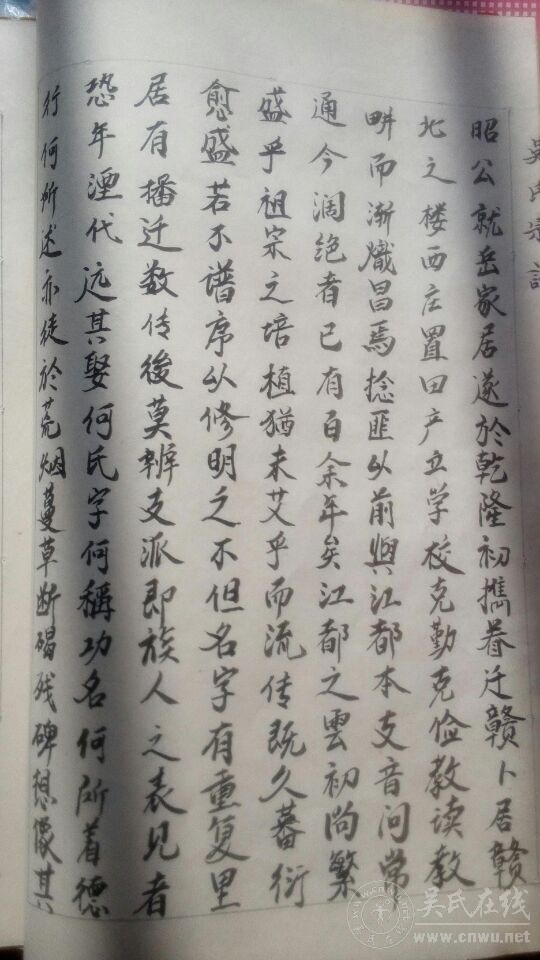 吴氏宗譜
昭公就岳家居遂於乾隆初携眷迁赣卜居赣
北之楼西庄置田产立学校克勤克俭教读教
畊而渐熾昌焉捻匪以前與江都本支音问常
通今阔绝者已有百余年矣江都之雲初尚繁
盛乎祖宗之培植猶未艾乎而流传既久蕃衍
愈盛若不谱序以修明之不但名字有重复里
居有播迁数传後莫辨支派即族人之表见者
恐年湮代远其娶何氏字何稱功名何所着德
行何所述亦徒於荒烟蔓草断碣残碑想像其
吴氏在线
www.cnwu.net